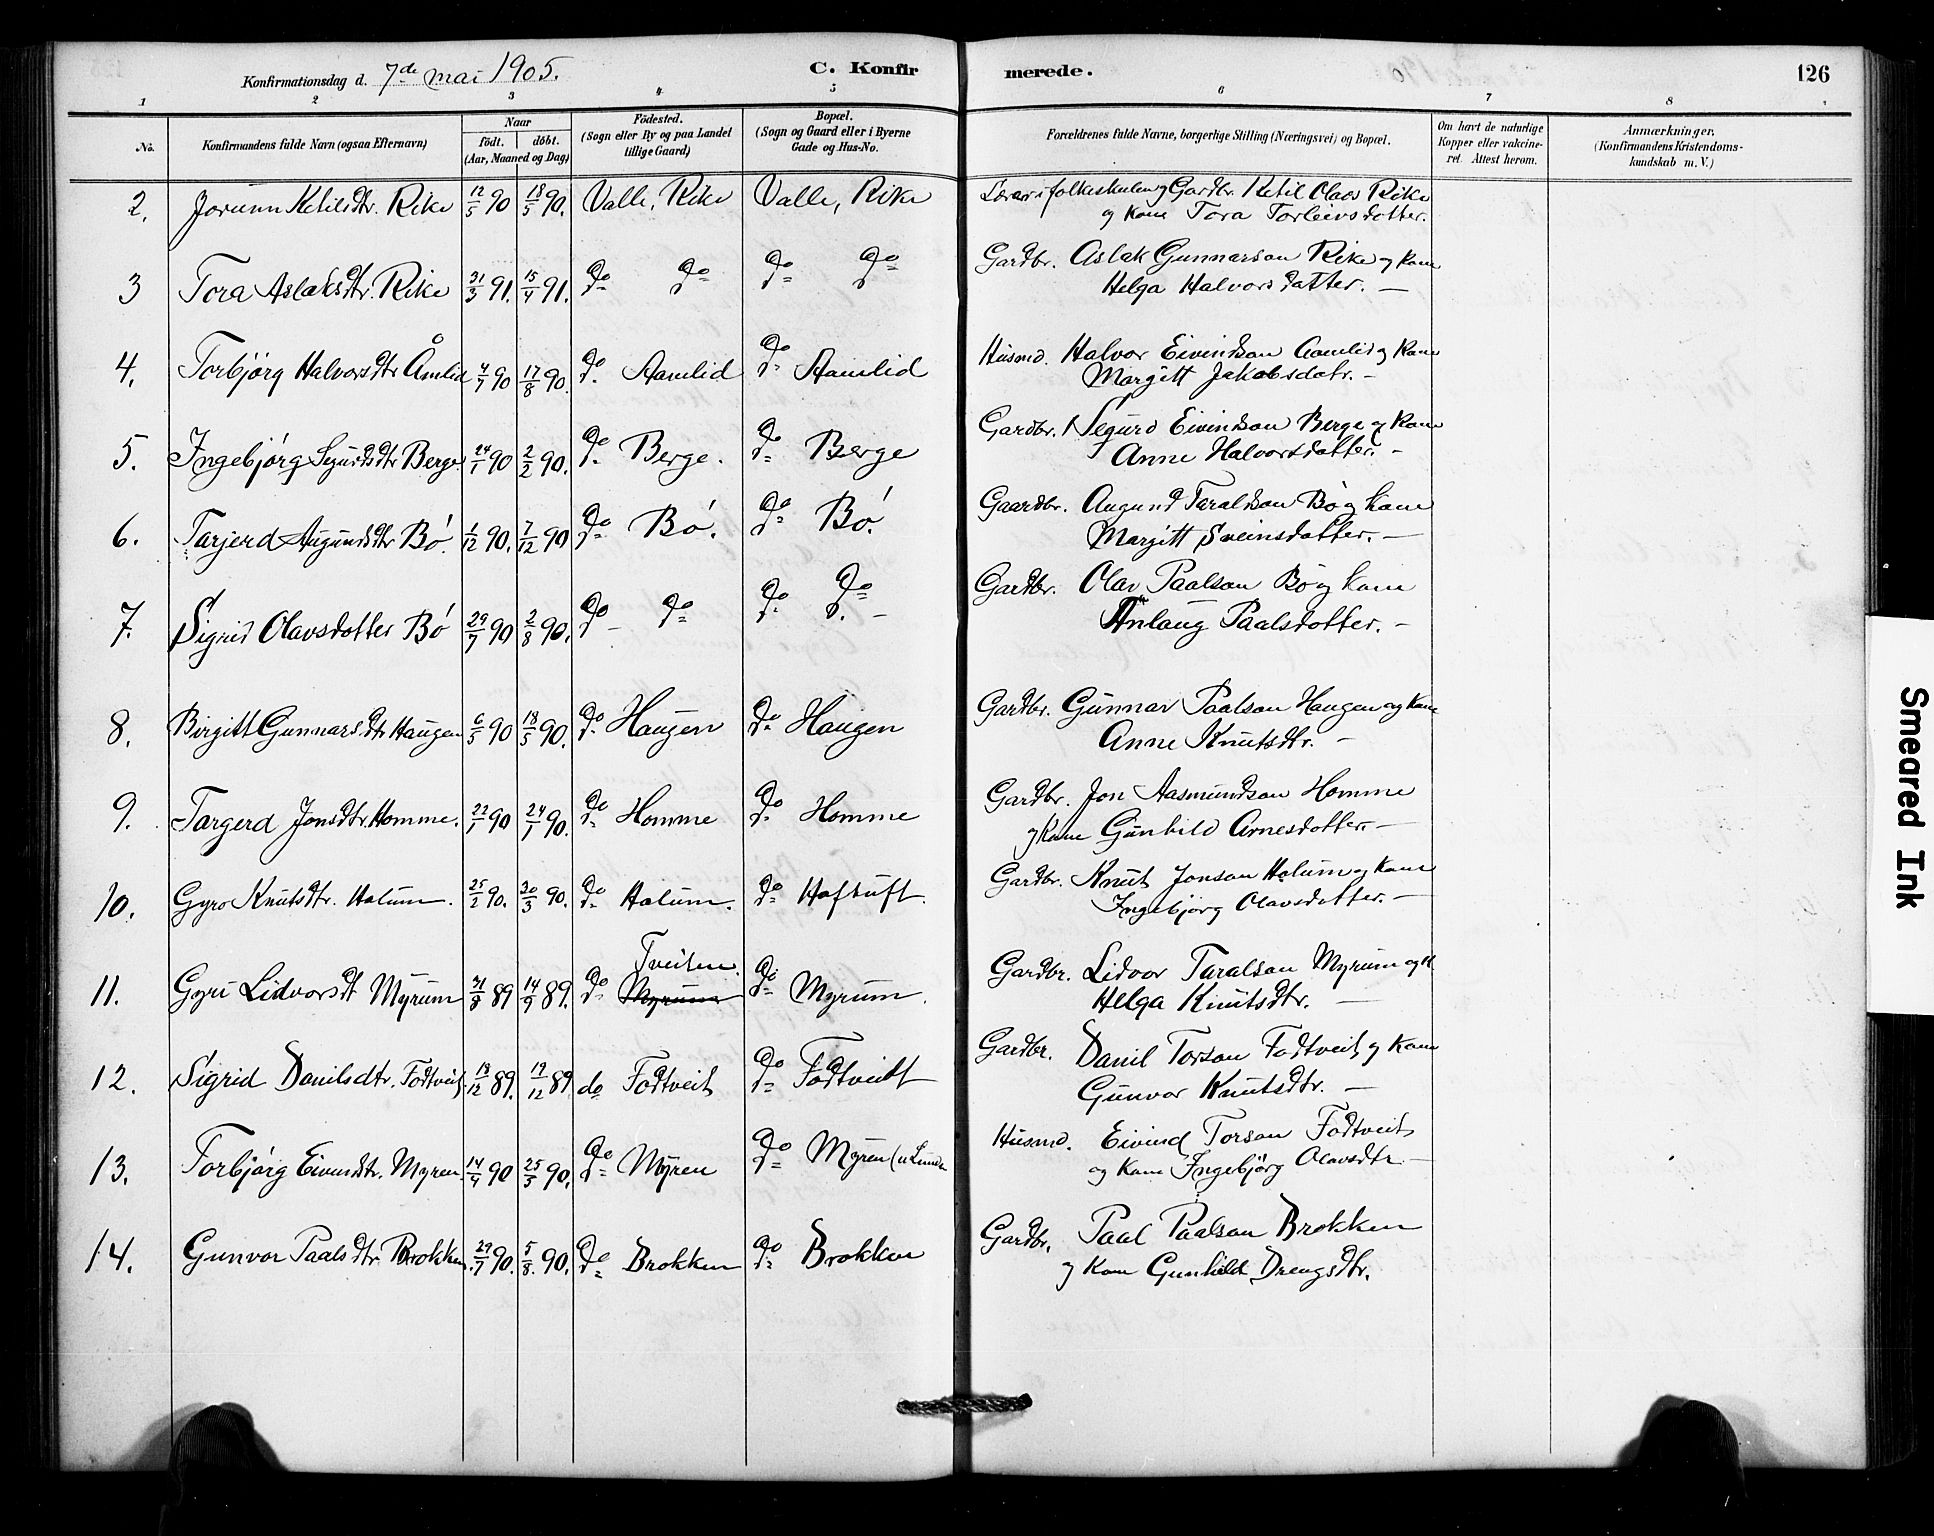 Konfirmationsdag d. 7de mai 1905.
C. Konfirmerede.
126
1 2 3 4 5 6 7 8
No.
Konfirmandens fulde Navn (ogsaa Efternavn)
Naar
födt. döbt.
(Aar, Maaned og Dag)
Födested.
(Sogn eller By og paa Landet
tillige Gaard)
Bopæl.
(Sogn og Gaard eller i Byerne
Gade og Hus-No.
Forældrenes fulde Navne, borgerlige Stilling (Næringsvei) og Bopæl.
Om havt de naturlige
Kopper eller vakcine-
ret. Attest herom.
Anmærkninger.
(Konfirmandens Kristendoms-
kundskab m. V.)
2. Jorunn Ketilsdtr. Rike 12/5 90 18/5 90. Valle, Rike Valle, Rike Lærar i folkeskulen og Gardbr. Ketil Olavs Rike
og kone Tora Torleivsdotter.
3 Tora Aslaksdtr. Rike 31/3 91. 15/4 91. do do do do Gardbr. Aslak Gunnarson Rike og kone
Helga Halvorsdatter. —
4. Torbjørg Halvorsdtr Åmlid 4/7 90 17/8 90. do Aamlid do Aamlid Husmd. Halvor Eivindson Aamlid og kone
Margitt Jakobsdotr. —
5. Ingebjørg Sigurdsdtr Berge 24/1 90 2/2 90. do Berge. do Berge Gardbr. Sigurd Eivindson Berge og kone
Anne Halvorsdotter. —
6. Tarjerd Augundsdtr Bø. 1/12 90. 7/12 90 do Bø. do Bø. Gaardbr. Augund Taraldson Bø og kone
Margitt Sveinsdotter. —
7. Sigrid Olavsdotter Bø 29/7 90 2/8 90. do do do do — Gardbr. Olav Paalson Bø og kone
Anlaug Paalsdotter. —
8. Birgitt Gunnarsdtr Haugen 6/5 90 18/5 90. do Haugen do Haugen Gardbr. Gunnar Paalson Haugen og kone
Anne Knutsdtr. —
9. Targerd Jonsdtr. Homme. 22/1 90 24/1 90. do Homme do Homme Gardbr. Jon Aasmundson Homme
og kone Gunhild Arnesdotter. —
10. Gyro Knutsdtr. Holum. 25/2 90. 30/3 90. do Holum. do Hoftuft. Gardbr. Knut Jonson Holum og kone
Ingebjørg Olavsdotter. —
Tveiten.
11. Gyri Lidvorsdt Myrum 31/8 89 14/9 89. do Myrum do Myrum. Gardbr. Lidvor Taralson Myrum og k.
Helga Knutsdtr. —
12. Sigrid Danilsdtr. Fodtveit 13/12 89. 19/12 89 do Fodtveit do Fodtveitt Gardbr. Danil Torson Fodtveit og kone
Gunvor Knutsdtr. —
13. Torbjørg Eivindtr. Myren 14/4 90 25/5 90. do Myren do Myren (u Lunden Husmd. Eivind Torson Fodtveit
og kone Ingebjørg Olavsdtr. —
14. Gunvor Paalsdtr. Brokken. 29/7 90. 5/8. 90. do Brokken do Brokken Gardbr. Paal Paalson Brokken
og kone Gunhild Drengsdtr.
Smeared Ink